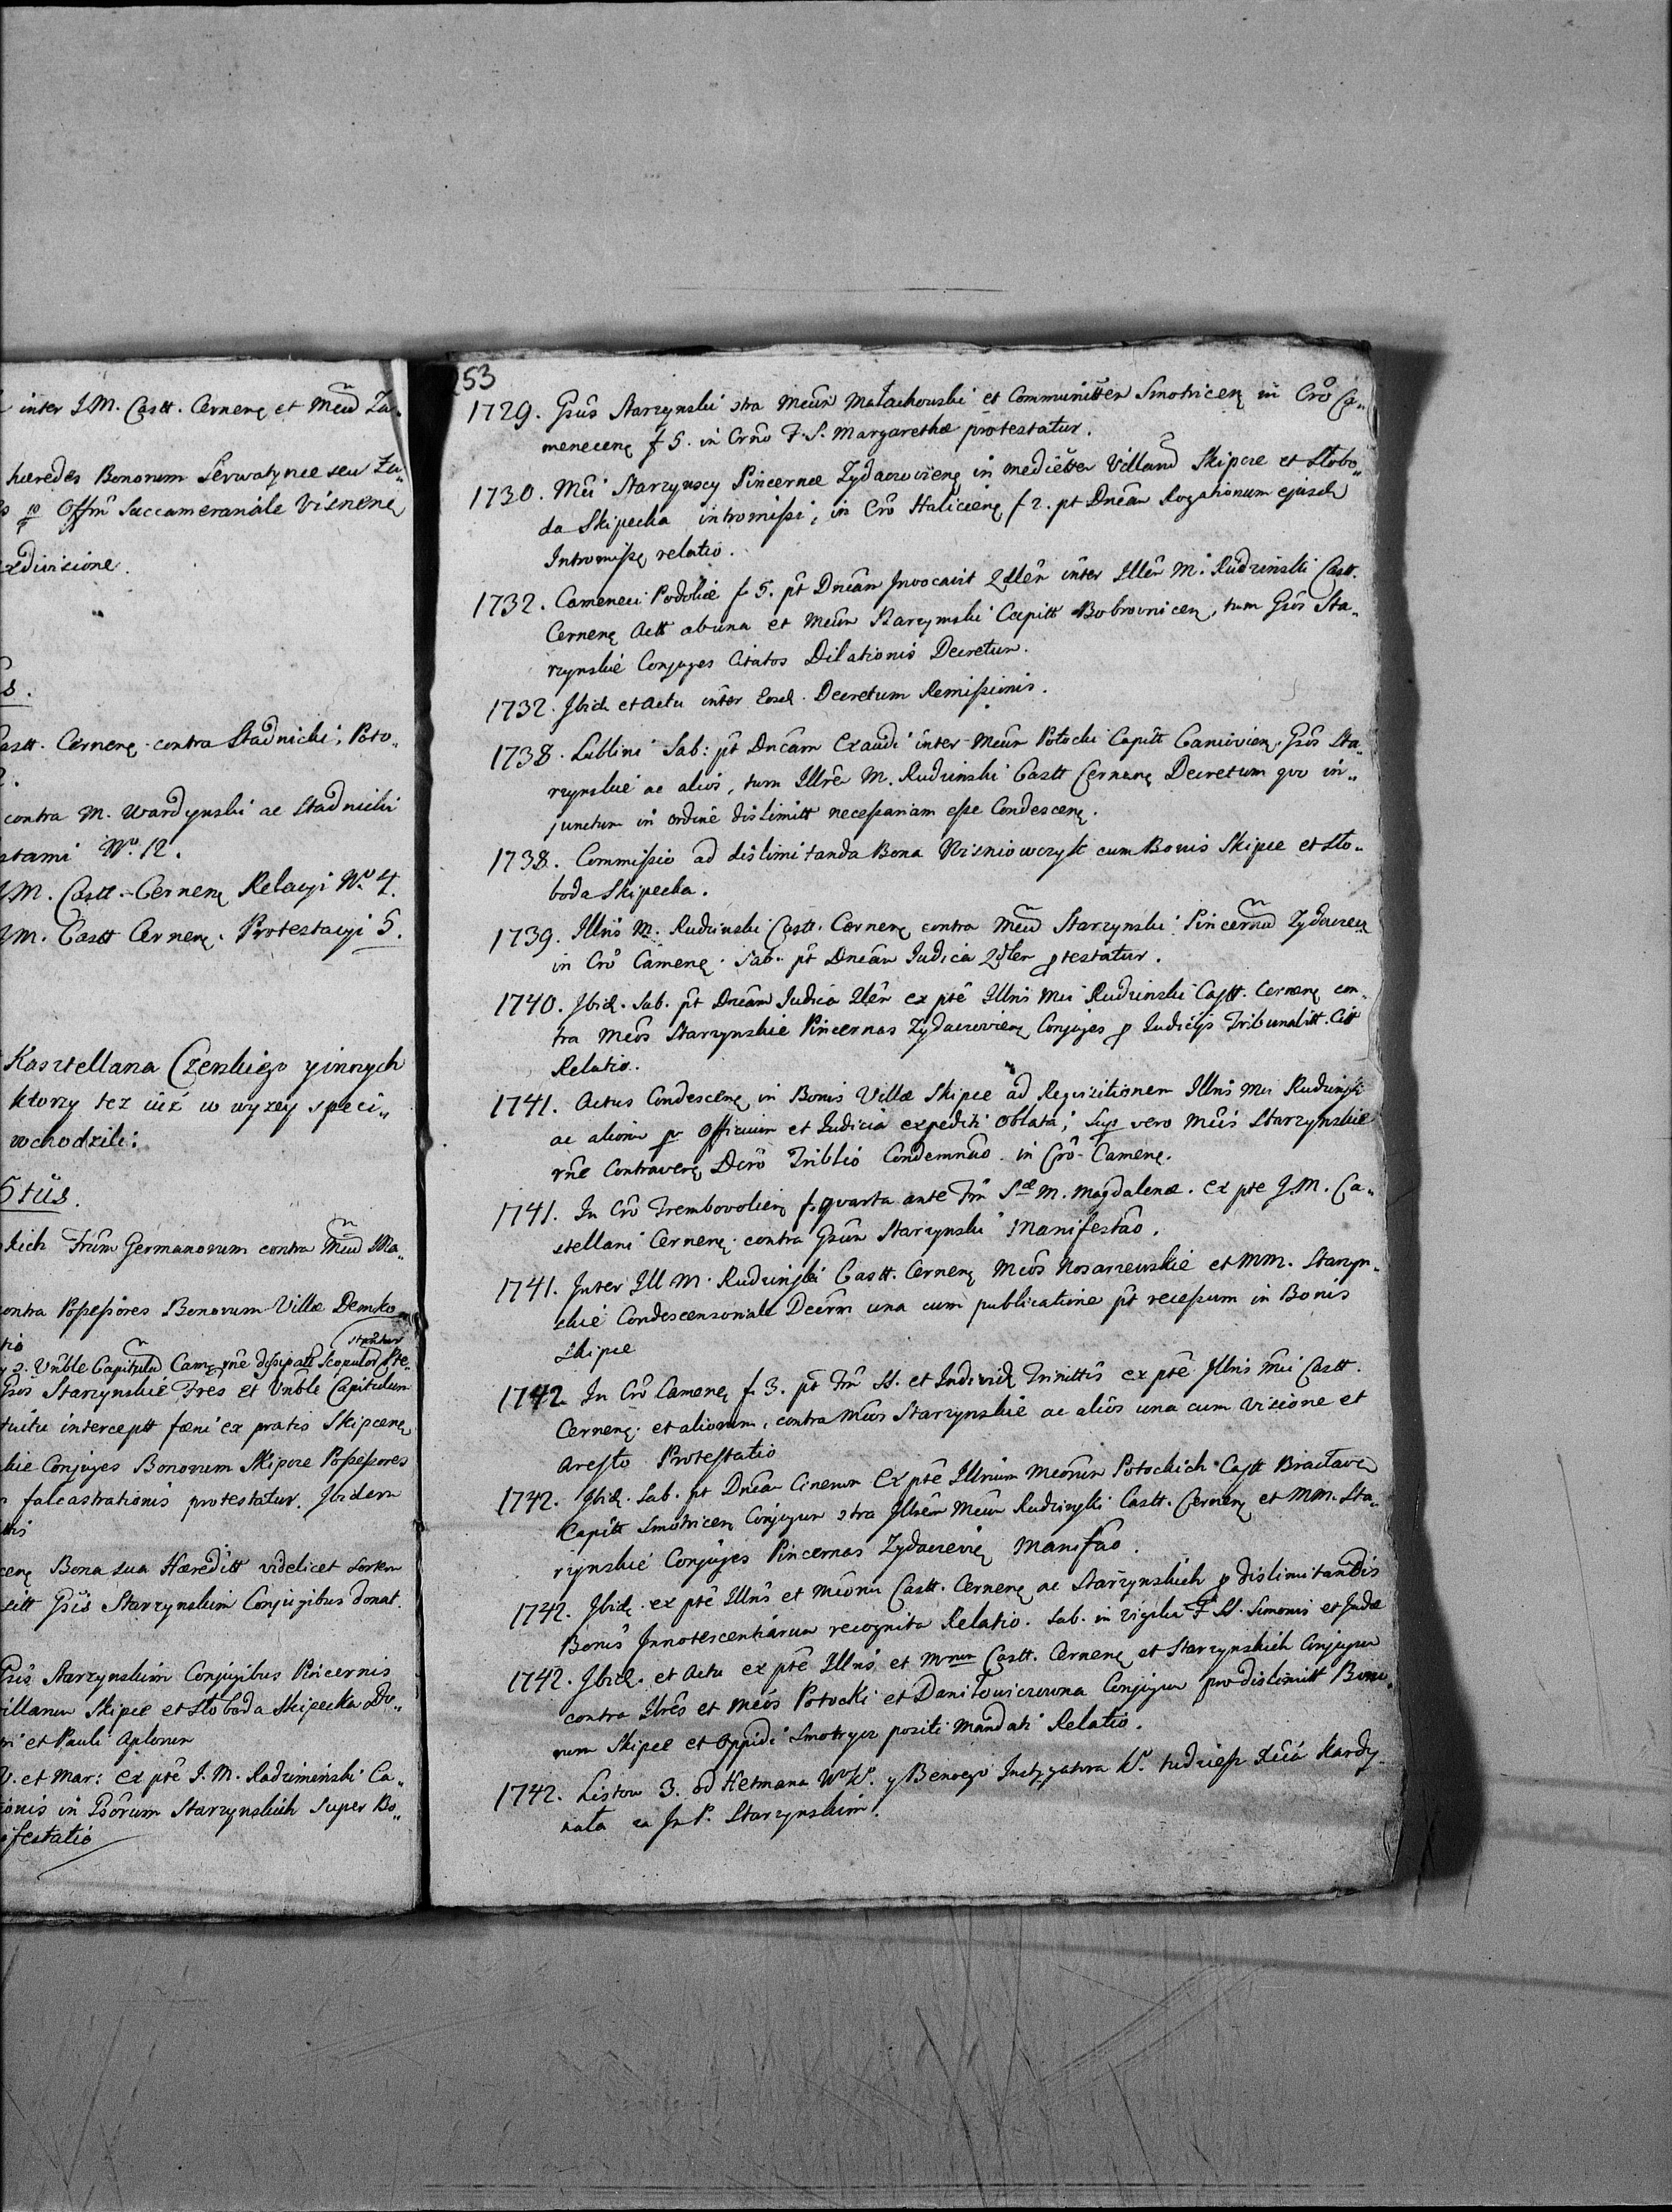 inter J.M. Castt. Cernenę et Meū Za„
hæredes Bonorum Serwatynce seu Zu„
Offm̃ Succamerariale Visnenę
xdivisione.
8.
astt. Cernenę contra Stadnicki, Poto„
contra M. Wardynski ac Stadnicki
stami Nº 12.
J.M. Castt. Cernenę Relacyi Nº 4.
J.M. Castt Cernenę. Protestacyi 5.
Kasztellana Czerskiego y innych
ktorzy tez iuż w wyzey speci„
wchodzili:
Stüs.
kich Frūm Germanorum contra Meū Ma„
ontra Possessores Bonorum Villæ Demko
tio
Vnble Capitulū Camę rñe dissipatt Scopulor Ste„
Gsos Starzynskie Fres et Vnble Capitulum
tuitu interceptt fæni ex pratis Skipcenę
kie Conjuges Bonorum Skipce Possessores
falcastrationis protestatur. Ibidem
cenę Bona sua Hæreditt videlicet sortem
sitt Gsis Starzynskim Conjugibus donat.
Gsis Starzynskim Conjugibus Pincernis
illarum Skipce et Słoboda Skipecka
ri et Pauli Aplorum
V. et Mar: Ex pte J.M. Radziminski Ca„
ionis in Gsorum Starzynskich super Bo„
festatio
253
1729. Gsūs Starzynski ɔtra Meūm Małachowski et Communitten Smotricenę in Crõ Ca„
menecenę f 5. in Crñō F. S. Margarethæ protestatur.
1730. Mći Starzynscy Pincernæ Zydaczoviēnę in mediettē Villarū Skipce et Słobo„
da Skipecka intromissi, in Crõ Haliciēnę f 2. pt Dncām Rogationum ejusdę
Intromissę relatio.
1732. Camenęci Podoliæ f 5. pt Dncām Invocavit Qdlēn inter Illēn M. Rudzinski Castt.
Cernenę Actt abuna et Meūm Skarzynski Capitt Bobrovnicenę, tum Gsōs Sta„
rzynskie Conjuges Citatos Dilationis Decretum.
1732. Ibidę et Actu inter Eosdę. Decretum Remissionis.
1738. Lublini Sab: pt Dncām Exaudi inter Meūm Potocki Capitt Canivienę. Gsōs Sta„
rzynskie ac alios, tum Illrē M. Rudzinski Castt Cernenę Decretum quo in„
junctum in ordine dislimitt necessariam esse Condescenę.
1738. Commissio ad dislimitanda Bona Wisniowczyk cum Bonis Skipce et Sło„
boda Skipecka.
1739. Illris M. Rudzinski Castt. Cernenę contra Meū Starzynski Pincernū Zydaczevę
in Crõ Camenę. Sab. pt Dncām Judica Qdlen ꝓtestatur.
1740. Ibidę. Sab. pt Dncām Judica Qlēn ex ptē Illris Mći Rudzinski Castt. Cernenę con„
tra Meōs Starzynskie Pincernas Zydaczovienę Conjuges ꝓ Judicijs Tribunalitt. Citt
Relatio.
1741. Actus Condescenę in Bonis Villæ Skipce ad Requisitionem Illris Mći Rudzinski
ac aliorum pr Officium et Judicia expediti Oblata, super vero Mćis Starzynskie
rñe Contravenę Dcrō Triblio Condemnāo. in Crõ Camenę.
1741. In Crõ Trembovolienę f. quarta ante Fm̃ Sæ M. Magdalenæ. Ex pte J.M. Ca„
stellani Cernenę. contra Gsūm Starzynski Manifestāo.
1741. Inter Ill M. Rudzinski Castt. Cernenę Meōs Kosarzewskie et MM. Starzyn„
skie Condescensoriale Decrm̃ una cum publicatione pt recessum in Bonis
Skipce
1742. In Crõ Camenę f. 3. pt Fm̃ SS. et Individę Trinittis ex ptē Illris Mći Castt.
Cernenę. et aliorum, contra Meōs Starzynskie ac aliōs una cum Visione et
Aresto Protestatio
1742. Ibidę. Sab. pt Dncām Cinerum Ex ptē Illrium Meōrum Potockich Castt Bracłavę
Capitt Smotricenę Conjugum ɔtra Illrēm Meūm Rudzinski Castt. Cernenę et MM. Sta„
rzynskie Conjuges Pincernas Zydaczevię Manifāo.
1742. Ibidę. ex ptē Illris et Meōrum Castt. Cernenę ac Starzynskich ꝓ dislimitandis
Bonis Innotescentiarum recognita Relatio. Sab. in Vigilia F SS. Simonis et Judæ
1742. Ibidę. et Actu ex ptē Illris et Mrum Castt. Cernenę et Starzynskich Conjugum
contra Illrēs et Meōs Potocki et Daniłowiczowna Conjugum pro dislimitt Bono„
rum Skipce et Oppidi Smotrycz positi Mandati Relatio.
1742. Listow 3. od Hetmana W. K. y Benoego Instygatora K. tudziesz Xcia Kardy„
nała za Jm P. Starzynskim.